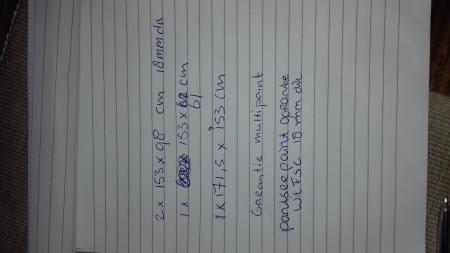 2 x 153 x 98 cm 18 mm dik
1 x 153 x 61 cm
1 x 171,5 x 153 cm
Garantie multipaint
paint garantie
Wit FSC 18 mm dik